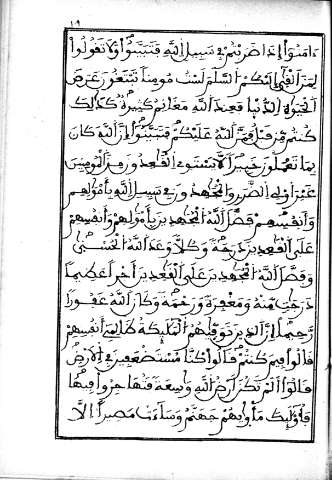 ١٩
ءامنوا إذا ضربتم في سبيل الله فتبينوا ولا تقولوا
لمن ألقى إليكم السلم لست مومنا تبتغون عرض
الحيوة الدنيا فعند الله مغانم كثيرة كذلك
كنتم من قبل فمن الله عليكم فتبينوا إن الله كان
بما تعملون خبيرا لا يستوي القعدون من المومنين
غير أولي الضرر والمجهدون في سبيل الله بأمولهم
وأنفسهم فضل الله المجهدين بأمولهم وأنفسهم
على القعدين درجة وكلا وعد الله الحسنى
وفضل الله المجهدين على القعدين أجرا عظيما
درجت منه ومغفرة ورحمة وكان الله غفورا
رحيما إن الذين توفيهم الملئكة ظالمي أنفسهم
قالوا فيم كنتم قالوا كنا مستضعفين في الأرض
قالوا ألم تكن أرض الله وسعة فتهاجروا فيها
فأولئك مأويهم جهنم وساءت مصيرا إلا